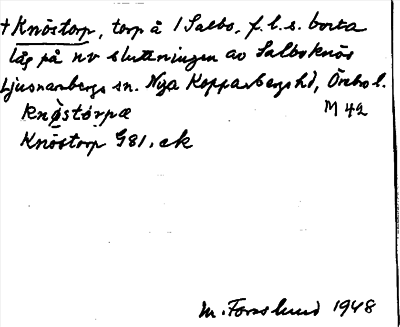 + Knöstorp, torp å 1 Salbo, f.l.s. borta
låg på nv sluttningen av Salboknös
Ljusnarsbergs sn. Nya Kopparbergs hd, Örebro l.
knø̀stórpæ M 42
Knöstorp G81. ek
M. Forslund 1948